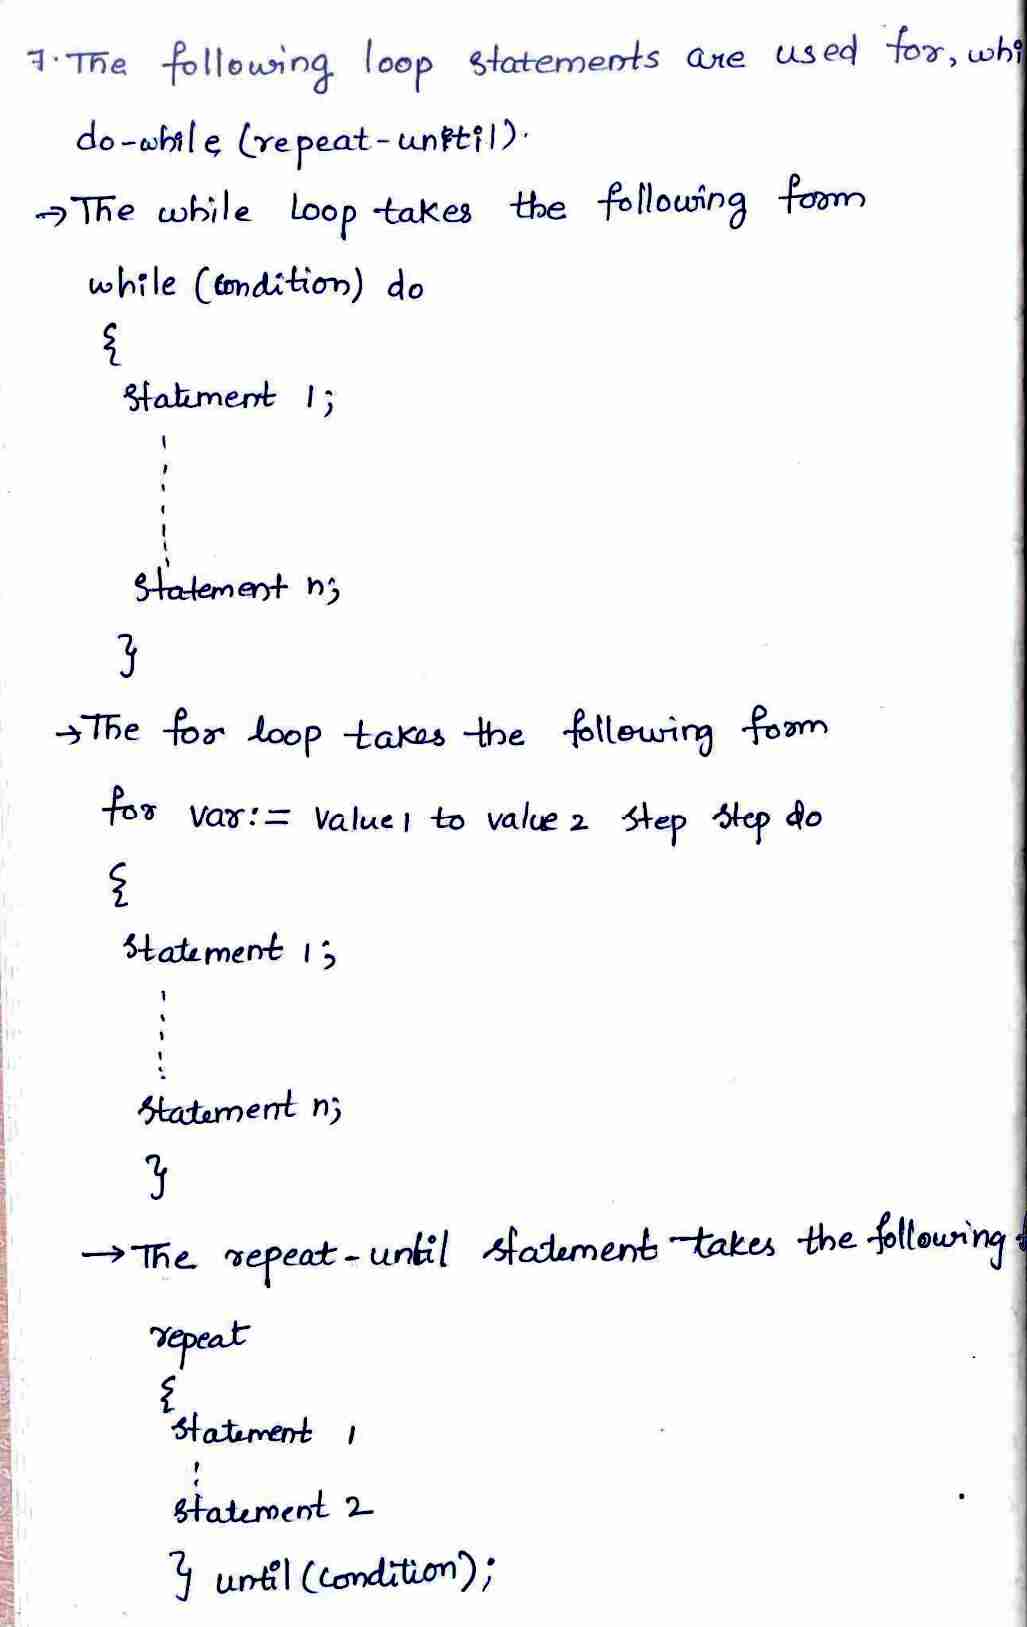 7. The following loop statements are used for, whi
do-while (repeat-until).
→ The while loop takes the following form
while (condition) do
{
statement 1;
statement n;
}
→ The for loop takes the following form
for var:= value1 to value 2 step step do
{
statement 1;
statement n;
}
→ The repeat-until statement takes the following
repeat
{
statement 1
statement 2
} until (condition);